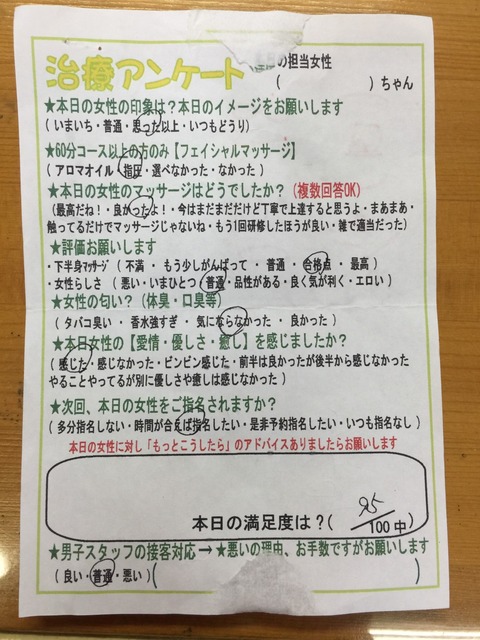 治療アンケート
の担当女性
(　　　　　)ちゃん
★本日の女性の印象は？本日のイメージをお願いします
(いまいち・普通・思った以上・いつもどうり)
★60分コース以上の方のみ【フェイシャルマッサージ】
(アロマオイル 指圧・選べなかった・なかった)
★本日の女性のマッサージはどうでしたか？(複数回答OK)
(最高だね！・良かったよ！・今はまだまだだけど丁寧で上達すると思うよ・まあまあ・
触ってるだけでマッサージじゃないね・もう1回研修したほうが良い・雑で適当だった)
★評価お願いします
・下半身マッサージ (不満 ・ もう少しがんばって ・ 普通 ・ 合格点 ・ 最高)
・女性らしさ (悪い・いまひとつ・普通・品性がある・良く気が利く・エロい)
★女性の匂い？(体臭・口臭等)
(タバコ臭い ・ 香水強すぎ ・ 気にならなかった ・ 良かった)
★本日女性の【愛情・優しさ・癒し】を感じましたか？
(感じた・感じなかった・ビンビン感じた・前半は良かったが後半から感じなかった
やることやってるが別に優しさや癒しは感じなかった)
★次回、本日の女性をご指名されますか？
(多分指名しない・時間が合えば指名したい・是非予約指名したい・いつも指名なし)
本日の女性に対し「もっとこうしたら」のアドバイスありましたらお願いします
本日の満足度は？(95/100中)
★男子スタッフの接客対応→★悪いの理由、お手数ですがお願いします
(良い・普通・悪い)(　　　　　)